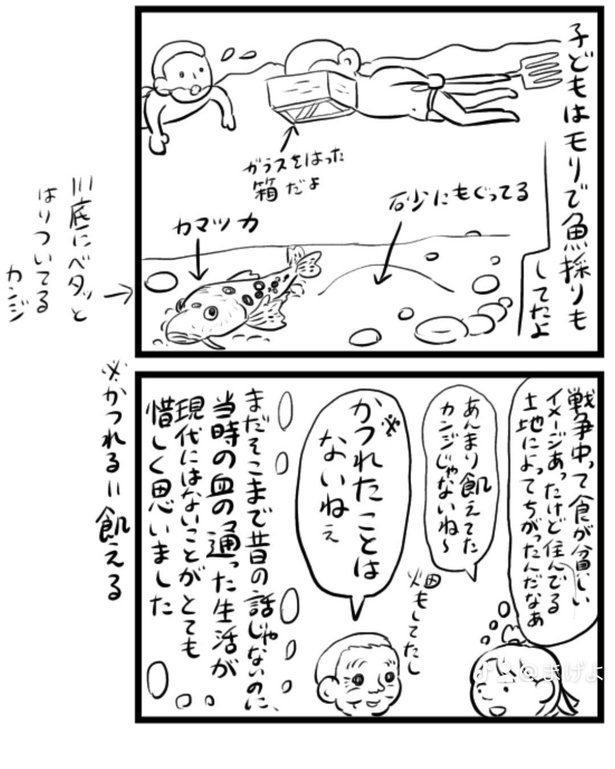 子どもはモリで魚採りも
してたよ
ガラスをはった
箱だよ
砂にもぐってる
カマツカ
川底にベタッと
はりついてる
カンジ
戦争中って食が貧しい
イメージあったけど住んでる
土地によってちがったんだなぁ
あんまり飢えてた
カンジじゃないね〜
畑もしてたし
※
かつれたことは
ないねぇ
まだそこまで昔の話じゃないのに、
当時の血の通った生活が
現代にはないことがとても
惜しく思いました
※かつれる=飢える
@まげよ